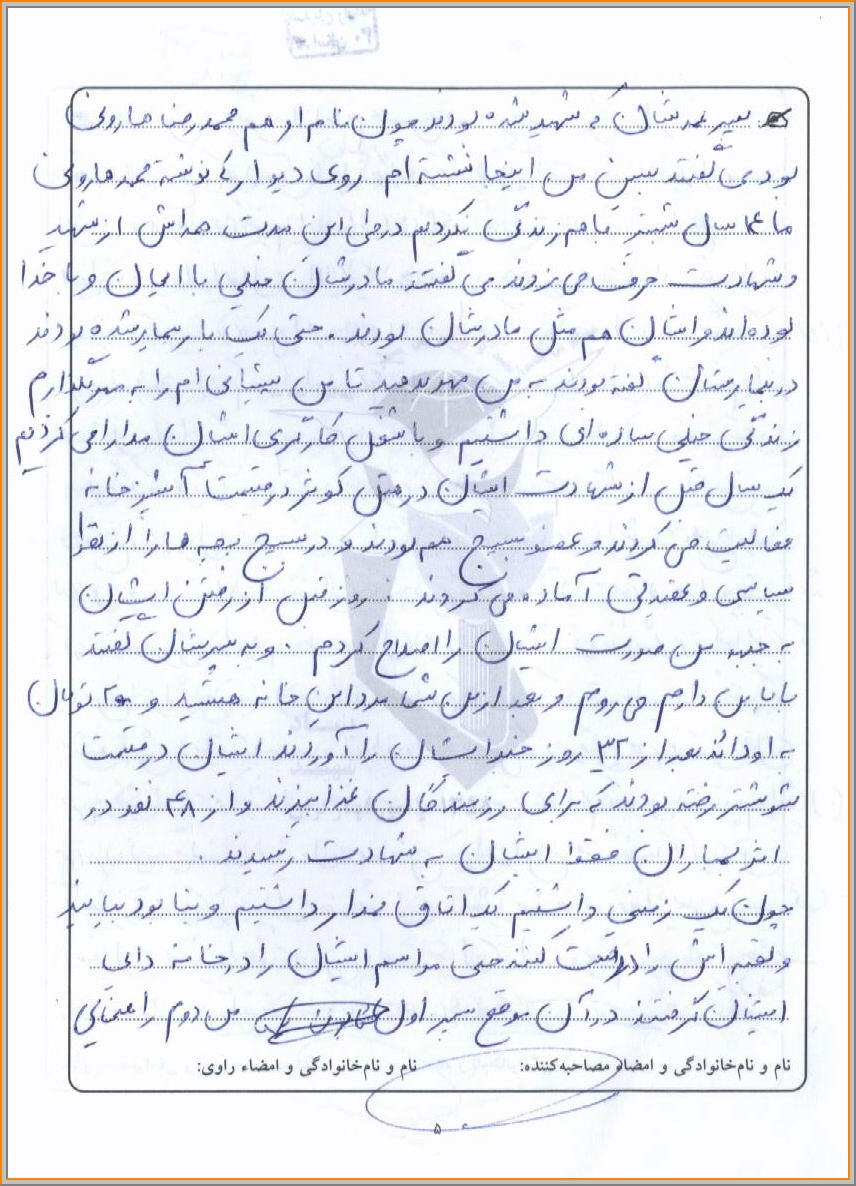 پسر عمه‌شان که شهید شده بودند چون نام او هم محمدرضا هارونی
بود می گفتند ببین من اینجا نشسته ام روی دیوار که نوشته محمد هارونی
ما ۱۴ سال بیشتر با هم زندگی نکردیم در طی این مدت همه‌اش از شهید
و شهادت حرف می زدند می گفتند مادرشان خیلی با ایمان و با خدا
بوده اند و ایشان هم مثل مادرشان بودند . حتی یک بار بیمار شده بودند
در بیمارستان گفته بودند به من مهر بدهید تا من پیشانی ام را به مهر بگذارم
زندگی خیلی ساده ای داشتیم و با شغل کارگری ایشان مدارا می کردیم
یک سال قبل از شهادت ایشان در هتل کوثر در قسمت آشپزخانه
فعالیت می کردند و عضو بسیج هم بودند و در بسیج بچه ها را از نظر
سیاسی و عقیدتی آماده می کردند . روز قبل از رفتن ایشان
به جبهه من صورت ایشان را اصلاح کردم . و به پسرشان گفتند
بابا من دارم می روم و بعد از من شما مرد این خانه هستید و ۲۰ تومان
به او دادند بعد از ۳۲ روز جسد ایشان را آوردند ایشان در قسمت
شوشتر رفته بودند که برای رزمندگان غذا بپزند و از ۴۸ نفر در
اثر بمباران فقط ایشان به شهادت رسیدند .
چون یک زمینی داشتیم یک اتاق داشتیم و بنا بود بیایند
و بقیه اش را درست کنند حتی مراسم ایشان را در خانه دایی
ایشان گرفتند در آن موقع پسر اول من دوم راهنمایی
نام و نام‌خانوادگی و امضاء مصاحبه‌کننده: نام و نام‌خانوادگی و امضاء راوی:
۵